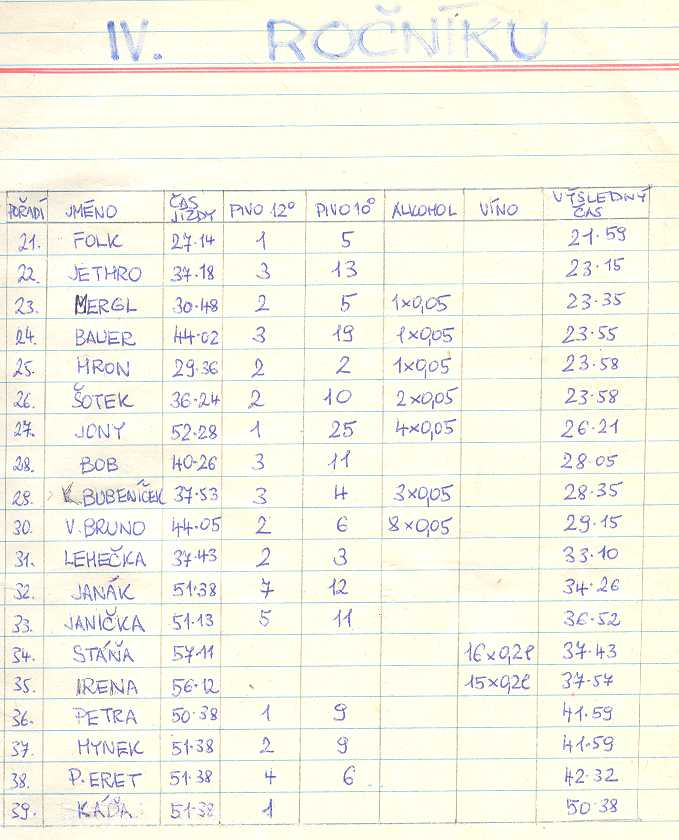 IV. ROČNÍKU
POŘADÍ JMÉNO ČAS JÍZDY PIVO 12° PIVO 10° ALKOHOL VÍNO VÝSLEDNÝ ČAS
21. FOLK 27.14 1 5 21.59
22. JETHRO 37.18 3 13 23.15
23. MERGL 30.48 2 5 1x0,05 23.35
24. BAUER 44.02 3 19 1x0,05 23.55
25. HRON 29.36 2 2 1x0,05 23.58
26. ŠOTEK 36.24 2 10 2x0,05 23.58
27. JONY 52.28 1 25 4x0,05 26.21
28. BOB 40.26 3 11 28.05
29. K.BUBENÍČEK 37.53 3 4 3x0,05 28.35
30. V.BRUNO 44.05 2 6 8x0,05 29.15
31. LEHEČKA 37.43 2 3 33.10
32. JANÁK 51.38 7 12 34.26
33. JANIČKA 51.13 5 11 36.52
34. STÁŇA 57.11 16x0,2l 37.43
35. IRENA 56.12 15x0,2l 37.57
36. PETRA 50.38 1 9 41.59
37. HYNEK 51.38 2 9 41.59
38. P.ERET 51.38 4 6 42.32
39. KÁČA 51.38 1 50.38